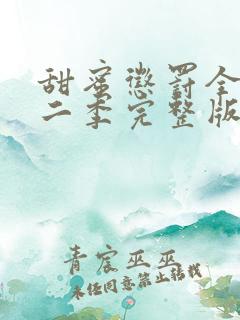 甜蜜惩罚全
二季完整版
青宸巫巫
未经同意禁止转载